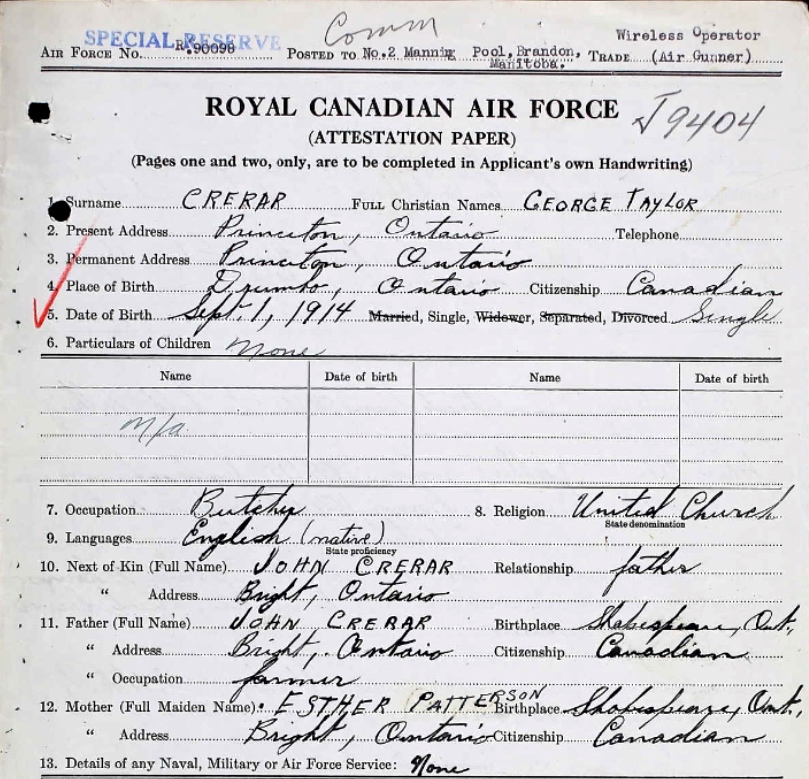 Comm
SPECIAL RESERVE Wireless Operator
AIR FORCE NO. R.90098 POSTED TO No.2 Manning Pool, Brandon, Manitoba. TRADE (Air Gunner)
ROYAL CANADIAN AIR FORCE J9404
(ATTESTATION PAPER)
(Pages one and two, only, are to be completed in Applicant's own Handwriting)
1. Surname CRERAR FULL Christian Names GEORGE TAYLOR
2. Present Address Princeton, Ontario Telephone
3. Permanent Address Princeton, Ontario
4. Place of Birth Drumbo, Ontario Citizenship Canadian
5. Date of Birth Sept. 1, 1914 Married, Single, Widower, Separated, Divorced Single
6. Particulars of Children None
Name Date of birth Name Date of birth
n/a
7. Occupation Butcher 8. Religion United Church
State denomination
9. Languages English (native)
State proficiency
10. Next of Kin (Full Name) JOHN CRERAR Relationship father
" Address Bright, Ontario
11. Father (Full Name) JOHN CRERAR Birthplace Shakespeare, Ont.,
" Address Bright, Ontario Citizenship Canadian
" Occupation farmer
12. Mother (Full Maiden Name) ESTHER PATTERSON Birthplace Shakespeare, Ont.,
" Address Bright, Ontario Citizenship Canadian
13. Details of any Naval, Military or Air Force Service: None